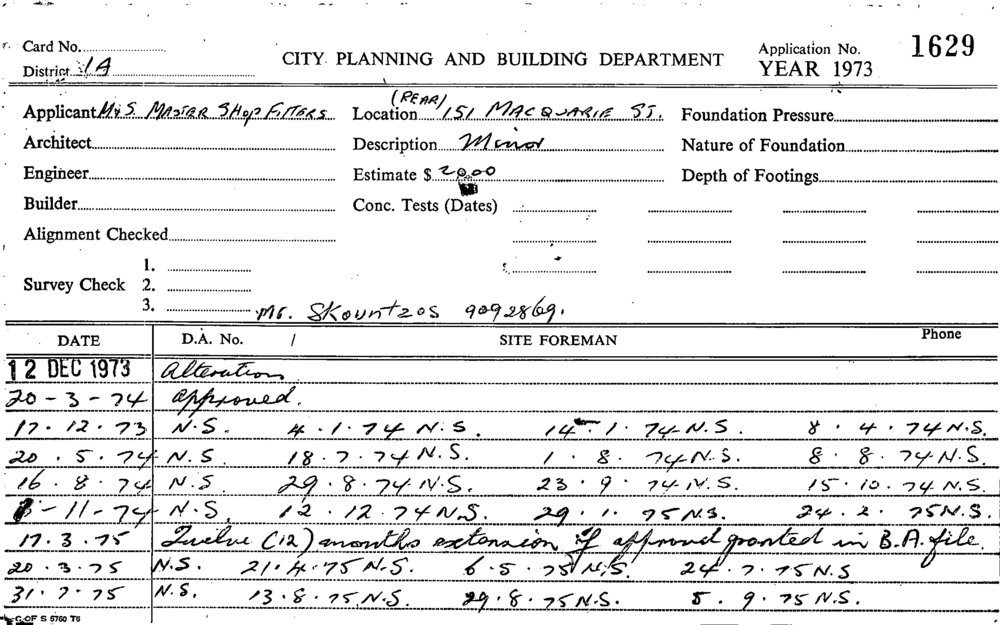 Card No. CITY PLANNING AND BUILDING DEPARTMENT Application No. 1629
District 1A YEAR 1973
Applicant M&S. MASTER SHOP FITTERS Location (REAR) 151 MACQUARIE ST. Foundation Pressure
Architect Description Minor Nature of Foundation
Engineer Estimate $ 2000 Depth of Footings
Builder Conc. Tests (Dates)
Alignment Checked
1.
Survey Check 2.
3. Mr. Skountzos 9092869.
DATE D.A. No. / SITE FOREMAN Phone
12 DEC 1973 Alterations
20-3-74 approved.
17.12.73 N.S. 4.1.74 N.S. 14.1.74 N.S. 8.4.74 N.S.
20.5.74 N.S. 18.7.74 N.S. 1.8.74 N.S. 8.8.74 N.S.
16.8.74 N.S. 29.8.74 N.S. 23.9.74 N.S. 15.10.74 N.S.
-11-74 N.S. 12.12.74 N.S. 29.1.75 N.S. 24.2.75 N.S.
17.3.75 Twelve (12) months extension of approval granted in B.A. file.
20.3.75 N.S. 21.4.75 N.S. 6.5.75 N.S. 24.7.75 N.S
31.7.75 N.S. 13.8.75 N.S. 29.8.75 N.S. 5.9.75 N.S.
C OF S 5760 T6